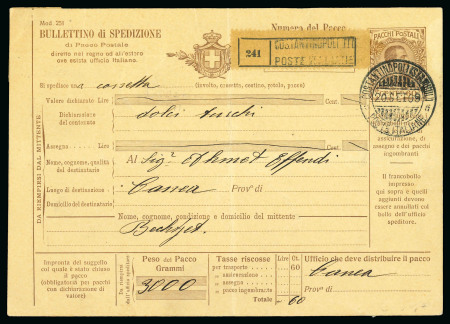 Mod. 251
BULLETTINO DI SPEDIZIONE
di Pacco Postale
diretto nel regno od all'estero
ove esista ufficio italiano.
Numero del Pacco
241
COSTANTINOPOLI
POSTE ITALIANE
PACCHI POSTALI
COSTANTINOPOLI
20.8.21
POSTE ITALIANE
Si spedisce una cassetta (involto, cassetto, cestino, pezzo, pacco)
Valore dichiarato Lire Cent.
Dichiarazione del contenuto dolci turchi
Assegno Lire Cent.
Nome, cognome, qualità del destinatario Al Sig.r Ahmet Effendi
Luogo di destinazione Canea Prov. di
Domicilio del destinatario
Nome, cognome, condizione e domicilio del mittente
Bechget.
DA RIEMPIRSI DAL MITTENTE
assicurazione, di assegno e dei pacchi ingombranti
Il francobollo impresso qui sopra è quelli aggiunti devono essere annullati col bollo dell'uffizio speditore.
Impronta del suggello col quale è stato chiuso il pacco (obbligatoria pei pacchi con dichiarazione di valore)
Da riempirsi dall'uffizio speditore
Peso del Pacco
Grammi
3000
Tasse riscosse Lire Ct.
per trasporto 60
» assicurazione
» assegno
» pacco ingombrante
Totale 60
Ufficio che deve distribuire il pacco
Canea
Prov. di